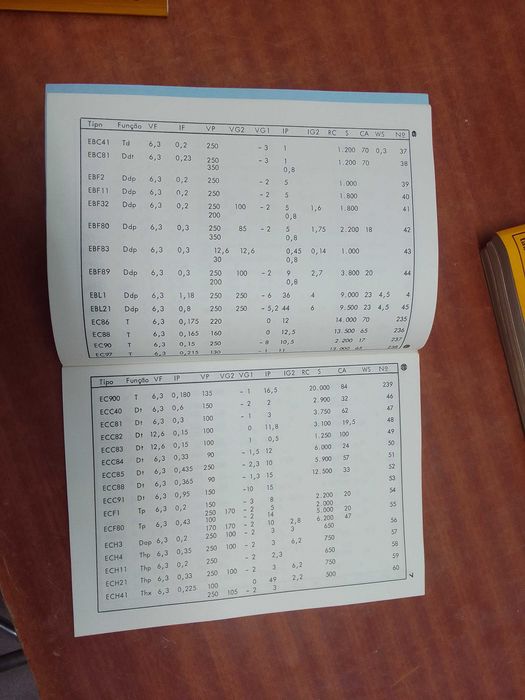 6
Tipo Função VF IF VP VG2 VG1 IP IG2 RC S CA WS Nº
EBC41 Td 6,3 0,2 250 - 3 1 1.200 70 0,3 37
EBC81 Ddt 6,3 0,23 250 - 3 1 1.200 70 38
350 0,8
EBF2 Ddp 6,3 0,2 250 - 2 5 1.000 39
EBF11 Ddp 6,3 0,2 250 - 2 5 1.800 40
EBF32 Ddp 6,3 0,2 250 100 - 2 5 1,6 1.800 41
200 0,8
EBF80 Ddp 6,3 0,3 250 85 - 2 5 1,75 2.200 18 42
350 0,8
EBF83 Ddp 6,3 0,3 12,6 12,6 0,45 0,14 1.000 43
30 0,8
EBF89 Ddp 6,3 0,3 250 100 - 2 9 2,7 3.800 20 44
200 0,8
EBL1 Ddp 6,3 1,18 250 250 - 6 36 4 9.000 23 4,5 4
EBL21 Ddp 6,3 0,8 250 250 - 5,2 44 6 9.500 23 4,5 45
EC86 T 6,3 0,175 220 0 12 14.000 70 235
EC88 T 6,3 0,165 160 0 12,5 13.500 65 236
EC90 T 6,3 0,15 250 - 8 10,5 2.200 17 237
EC97 T 6,3 0,215 130 - 1 11 13.000 65 238
Tipo Função VF IP VP VG2 VG1 IP IG2 RC S CA WS Nº
EC900 T 6,3 0,180 135 - 1 16,5 20.000 84 239
ECC40 Dt 6,3 0,6 150 - 2 2 2.900 32 46
ECC81 Dt 6,3 0,3 100 - 1 3 3.750 62 47
ECC82 Dt 12,6 0,15 100 0 11,8 3.100 19,5 48
ECC83 Dt 12,6 0,15 100 1 0,5 1.250 100 49
ECC84 Dt 6,3 0,33 90 - 1,5 12 6.000 24 50
ECC85 Dt 6,3 0,435 250 - 2,3 10 5.900 57 51
ECC88 Dt 6,3 0,365 90 - 1,3 15 12.500 33 52
ECC91 Dt 6,3 0,95 150 -10 15 53
ECF1 Tp 6,3 0,2 150 - 3 8 2.200 20 54
250 170 - 2 5 2.000
ECF80 Tp 6,3 0,43 100 - 2 14 5.000 20 55
170 170 - 2 10 2,8 6.200 47
ECH3 Dop 6,3 0,2 250 100 - 2 3 3 650 56
ECH4 Thp 6,3 0,35 250 100 - 2 3 6,2 750 57
ECH11 Thp 6,3 0,2 250 - 2 2,3 650 58
ECH21 Thp 6,3 0,33 250 100 - 2 3 6,2 750 59
ECH41 Thx 6,3 0,225 100 0 49 2,2 500 60
250 105 - 2 3
7